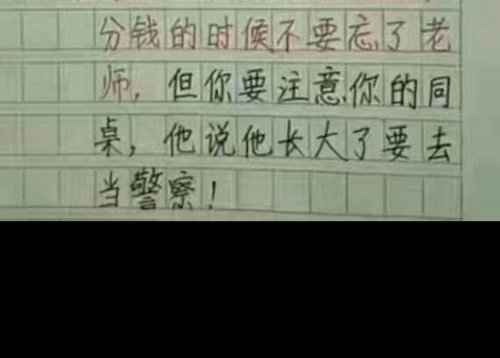 分钱的时候不要忘了老
师，但你要注意你的同
桌，他说他长大了要去
当警察！